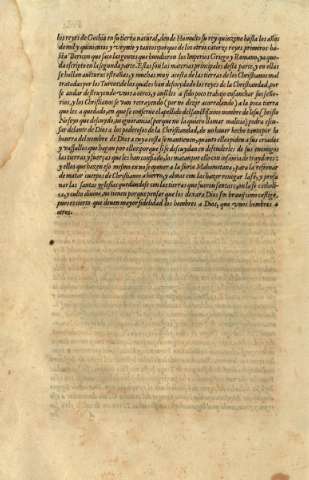 los reyes de Gothia en su tierra natural, donde Hamulto su rey quinzeno hasta los años
de mil y quinientos y veynte y tantos: porque de los otros catorze reyes primeros ha-
sta Bericon que saco las gentes que hundieron los Imperios Griego y Romano, ya que-
da escripto en la segunda parte. Estas son las materias principales desta parte, y en ellas
se hallan auituras estrañas, y muchas muy acerca de las tierras de los Christianos mal
tratadas por los Turcos: de las quales han defraydo los reyes de la Christiandad, por
se andar destruyendo vnos a otros, y assi les a sido poco trabajo ensanchar sus seño-
rios, y los Christianos se van retrayendo (por no dezir acorralando) a la poca tierra
que les a quedado, en que se conserue el apellido del sanctissimo nombre de Iesu Christo
No se yo que desculpa, ni que ignorancia (porque no la quiero llamar malicia) podra escu-
sar delante de Dios a los poderosos de la Christiandad, de no hauer hecho tanto por la
honrra del nombre de Dios a cuya costa se mantienen, quanto ellos piden a sus criados
y vassallos que hagan por ellos: porque si se descuydan en defenderles de sus enemigos
las tierras y fuerças que les han confiado, los matan por ello con infamia de traydores: y
y ellos que han venido mesmo en no quemar a la furia Mahometana, para la refrenar
de matar cuerpos de Christianos a hierro, y almas con las hazer renegar la fe, y profa-
nar las sanctas yglesias quedandose con las tierras que fueron sanctas, con la fe catholi-
ca, y culto diuino, no tienen porque pensar que los dexara Dios sin brauissimo castigo,
pues es cierto que deuen mejor fidelidad los hombres a Dios, que vnos hombres a
otros.